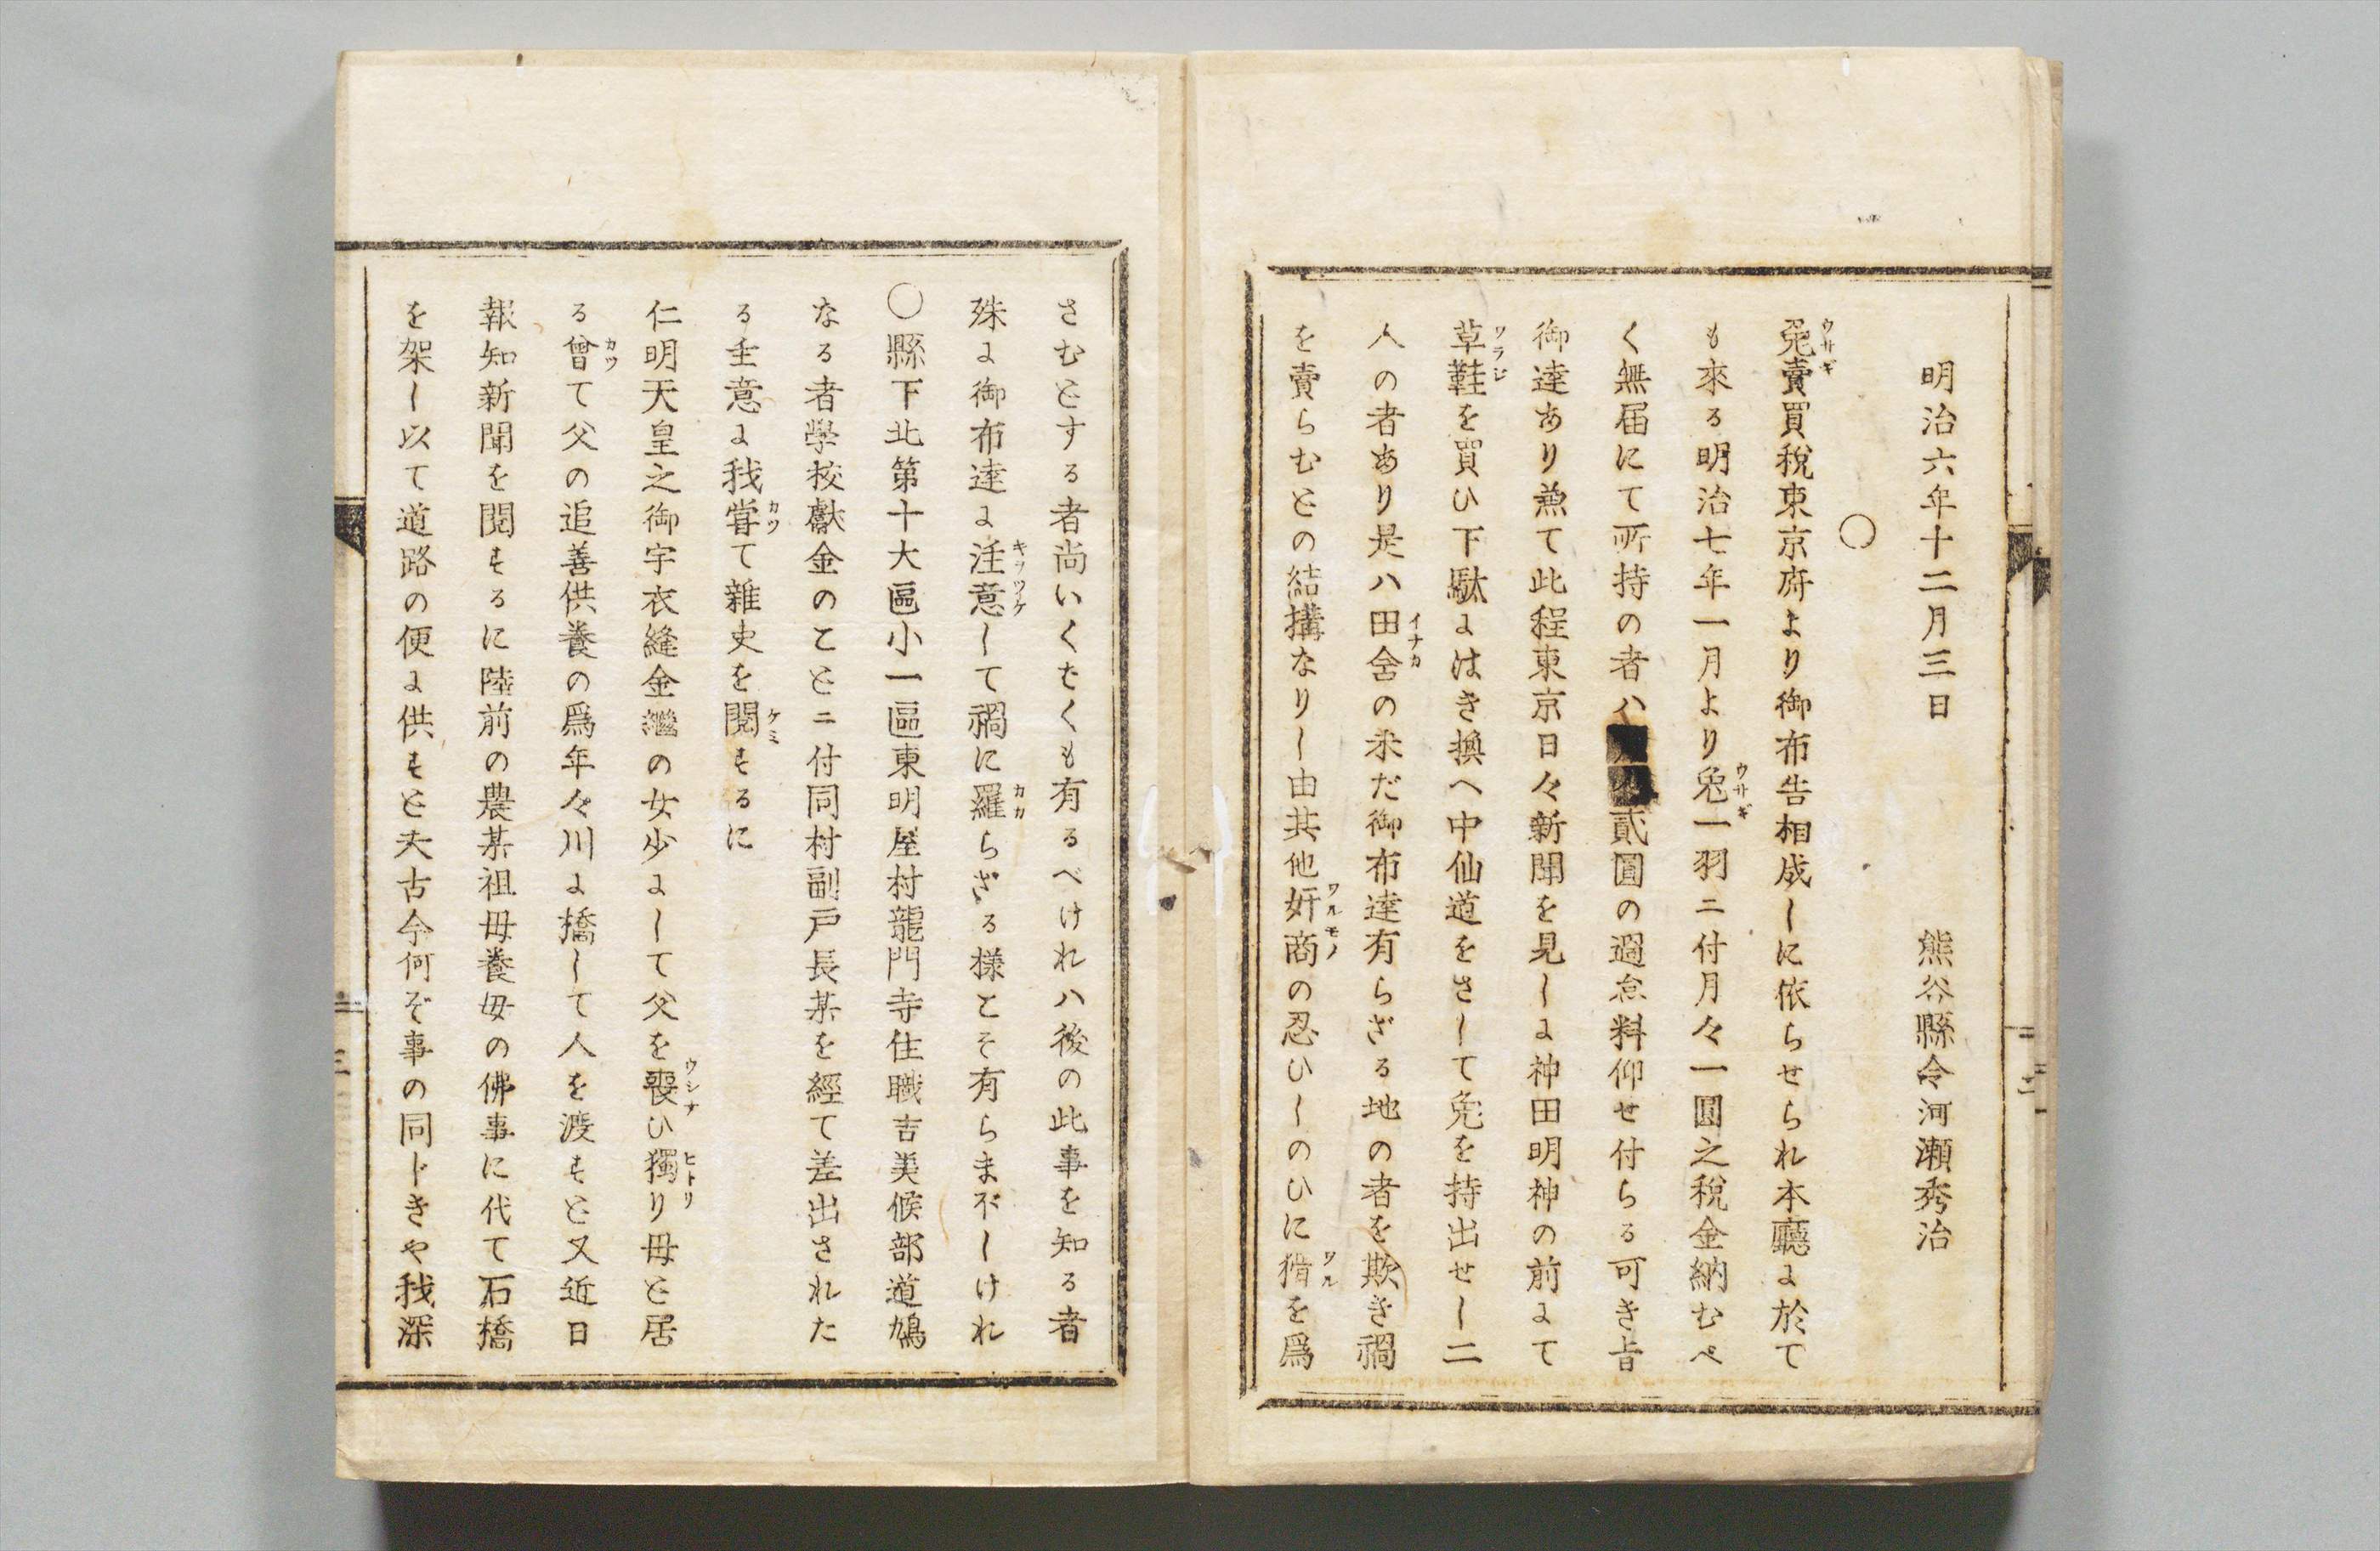 明治六年十二月三日　熊谷縣令河瀬秀治
〇
兎賣買税東京府より御布告相成しに依らせられ本廳よ於て
ウサギ
も來る明治七年一月より兎一羽ニ付月々一圓之税金納むべ
ウサギ
く無届にて所持の者ハ貳圓の過怠料仰せ付らる可き旨
御達あり兼て此程東京日々新聞を見しよ神田明神の前よて
草鞋を買ひ下駄よはき換へ中仙道をさして兎を持出せし二
ワラジ
人の者あり是ハ田舎の未だ御布達有らざる地の者を欺き禍
イナカ
を賣らむとの結搆なりし由其他奸商の忍ひしのひに猾を爲
ワルモノ
ワル
さむとする者尚いくたくも有るべけれハ後の此事を知る者
殊よ御布達よ注意して禍に羅らざる様こそ有らま不しけれ
キヲツケ
カカ
〇縣下北第十大區小一區東明屋村龍門寺住職吉美候部道鳩
なる者學校獻金のことニ付同村副戸長某を經て差出された
る主意よ我甞て雜史を閲するに
カツ
ケミ
仁明天皇之御宇衣縫金繼の女少よして父を喪ひ獨り母と居
ウシナ
ヒトリ
る曾て父の追善供養の爲年々川よ橋して人を渡すと又近日
カツ
報知新聞を閲するに陸前の農某祖母養母の佛事に代て石橋
を架し以て道路の便よ供すと夫古今何ぞ事の同ドきや我深
二
三